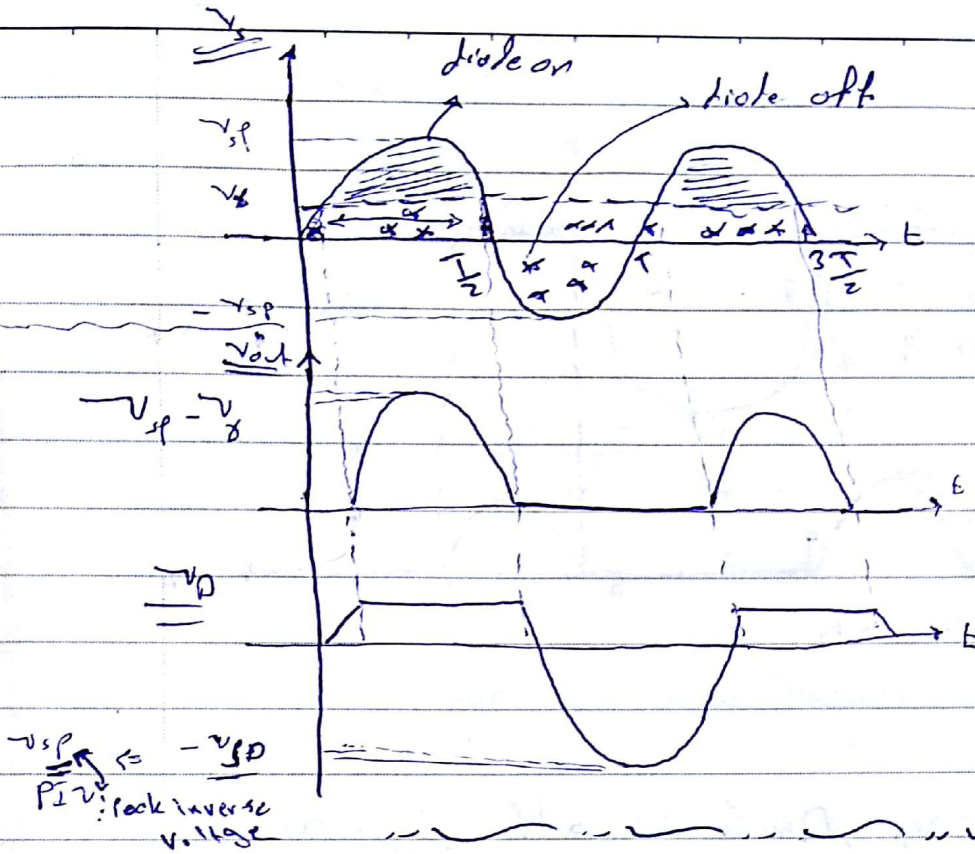 Vs
diode on
diode off
Vsp
Vγ
T/2
T
3T/2
t
-Vsp
Vout
Vsp - Vγ
t
VD
t
Vsp <= -Vsp
PIV: Peak inverse
voltge